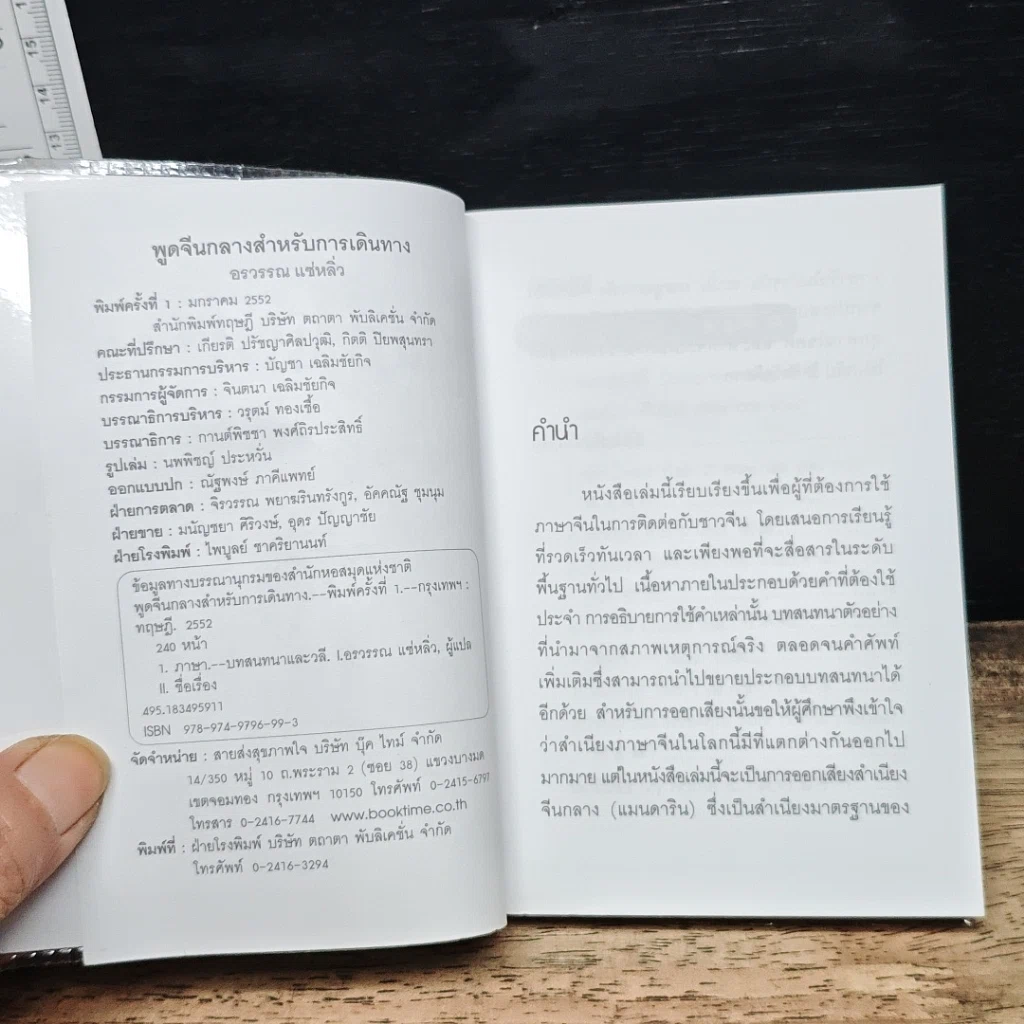 15
14
13
พูดจีนกลางสำหรับการเดินทาง
อรวรรณ แซ่หลิ่ว
พิมพ์ครั้งที่ 1 : มกราคม 2552
สำนักพิมพ์ทฤษฎี บริษัท ตถาตา พับลิเคชั่น จำกัด
คณะที่ปรึกษา : เกียรติ ปรัชญาศิลปวุฒิ, กิตติ ปิยพสุนทรา
ประธานกรรมการบริหาร : บัญชา เฉลิมชัยกิจ
กรรมการผู้จัดการ : จินตนา เฉลิมชัยกิจ
บรรณาธิการบริหาร : วรุตม์ ทองเชื้อ
บรรณาธิการ : กานต์พิชชา พงศ์ถิรประสิทธิ์
รูปเล่ม : นพพิชญ์ ประหวั่น
ออกแบบปก : ณัฐพงษ์ ภาคีแพทย์
ฝ่ายการตลาด : จิรวรรณ พยาฆรินทรังกูร, อัคคณัฐ ชุมนุม
ฝ่ายขาย : มนัญชยา ศิริวงษ์, อุดร ปัญญาชัย
ฝ่ายโรงพิมพ์ : ไพบูลย์ ชาคริยานนท์
ข้อมูลทางบรรณานุกรมของสำนักหอสมุดแห่งชาติ
พูดจีนกลางสำหรับการเดินทาง.--พิมพ์ครั้งที่ 1.--กรุงเทพฯ :
ทฤษฎี. 2552
240 หน้า
1. ภาษา.--บทสนทนาและวลี. I.อรวรรณ แซ่หลิ่ว, ผู้แปล
II. ชื่อเรื่อง
495.183495911
ISBN 978-974-9796-99-3
จัดจำหน่าย : สายส่งสุขภาพใจ บริษัท บุ๊ค ไทม์ จำกัด
14/350 หมู่ 10 ถ.พระราม 2 (ซอย 38) แขวงบางมด
เขตจอมทอง กรุงเทพฯ 10150 โทรศัพท์ 0-2415-6797
โทรสาร 0-2416-7744 www.booktime.co.th
พิมพ์ที่ : ฝ่ายโรงพิมพ์ บริษัท ตถาตา พับลิเคชั่น จำกัด
โทรศัพท์ 0-2416-3294
คำนำ
หนังสือเล่มนี้เรียบเรียงขึ้นเพื่อผู้ที่ต้องการใช้
ภาษาจีนในการติดต่อกับชาวจีน โดยเสนอการเรียนรู้
ที่รวดเร็วทันเวลา และเพียงพอที่จะสื่อสารในระดับ
พื้นฐานทั่วไป เนื้อหาภายในประกอบด้วยคำที่ต้องใช้
ประจำ การอธิบายการใช้คำเหล่านั้น บทสนทนาตัวอย่าง
ที่นำมาจากสภาพเหตุการณ์จริง ตลอดจนคำศัพท์
เพิ่มเติมซึ่งสามารถนำไปขยายประกอบบทสนทนาได้
อีกด้วย สำหรับการออกเสียงนั้นขอให้ผู้ศึกษาพึงเข้าใจ
ว่าสำเนียงภาษาจีนในโลกนี้มีที่แตกต่างกันออกไป
มากมาย แต่ในหนังสือเล่มนี้จะเป็นการออกเสียงสำเนียง
จีนกลาง (แมนดาริน) ซึ่งเป็นสำเนียงมาตรฐานของ